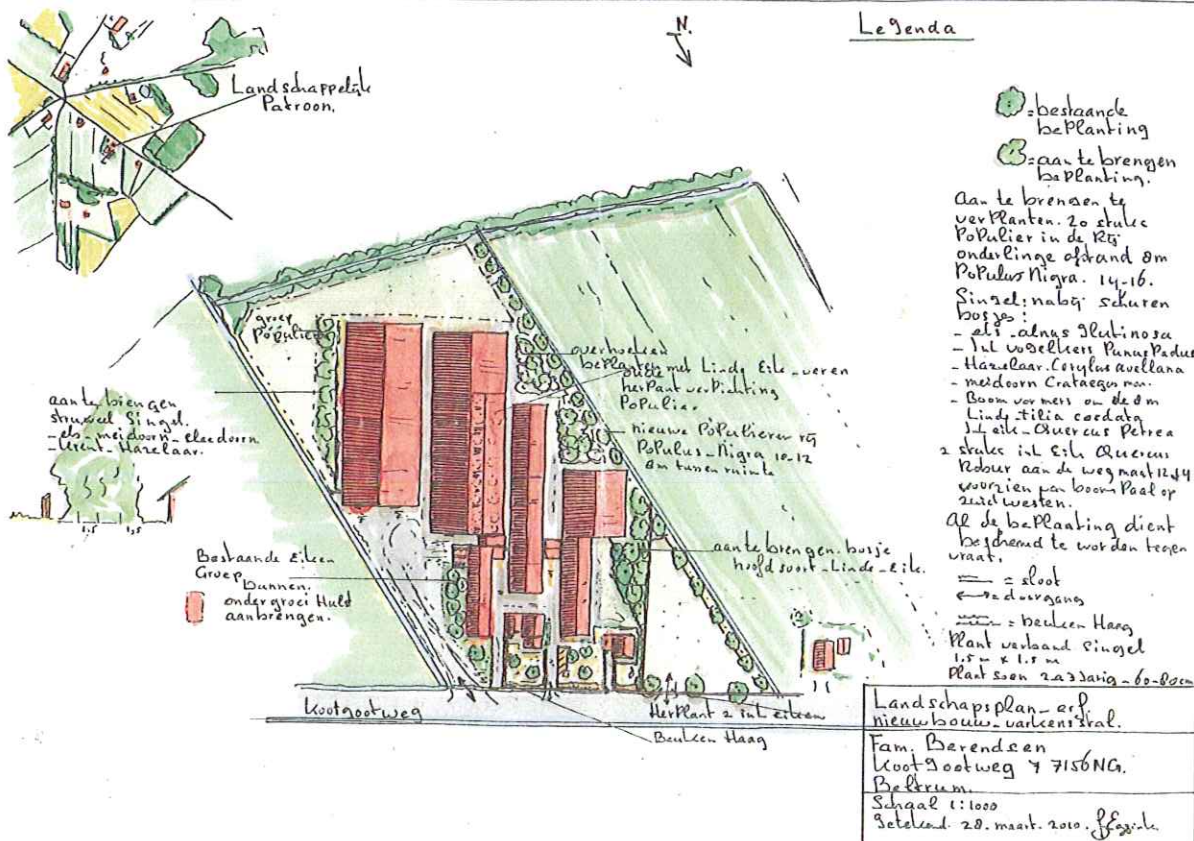 Landschappelijk
Patroon.
N.
Legenda
= bestaande
bePlanting
= aan te brengen
bePlanting.
Aan te brengen te
verPlanten. 20 stuks
PoPulier in de Rij
onderlinge afstand 8m
PoPulus Nigra. 14-16.
Singel: nabij schuren
bosjes:
- els - alnus Glutinosa
- Inl vogelkers PunusPadus
- Hazelaar. Corylus avellana
- meidoorn Crataegus mon.
- Boom vormers om de 8m
Linde - tilia cordata
Inl eik - Quercus Petrea
2 stuks inl Eik Quercus
Robur aan de weg maat 12-14
voorzien van boom Paal op
zuid westen.
Al de bePlanting dient
beschermd te worden tegen
vraat.
= sloot
= doorgang
= beuken Haag
Plant verband Singel
1,5 m x 1.5 m
Plant soen 2 a 3 Jarig - 60-80cm
groep
PoPulier
overhoeken
bePlanten met Linde Eik - veren
herPlant verPlichting
PoPulier.
nieuwe PoPulieren rij
PoPulus - Nigra 10-12
8m tussen ruimte
aan te brengen
struweel Singel.
- els - meidoorn - sleedoorn
- krent - Hazelaar.
1,5 1,5
Bestaande Eiken
Groep
dunnen.
ondergroei Hulst
aanbrengen.
aan te brengen. bosje
hoofdsoort - Linde - Eik.
Kootgootweg
HerPlant 2 inl eiken
Beuken Haag
Landschapsplan - erf.
nieuwbouw - varkensstal.
Fam. Berendsen
Kootgootweg 7 7156NG.
Beltrum.
Schaal 1:1000
Getekend. 28. maart. 2010.